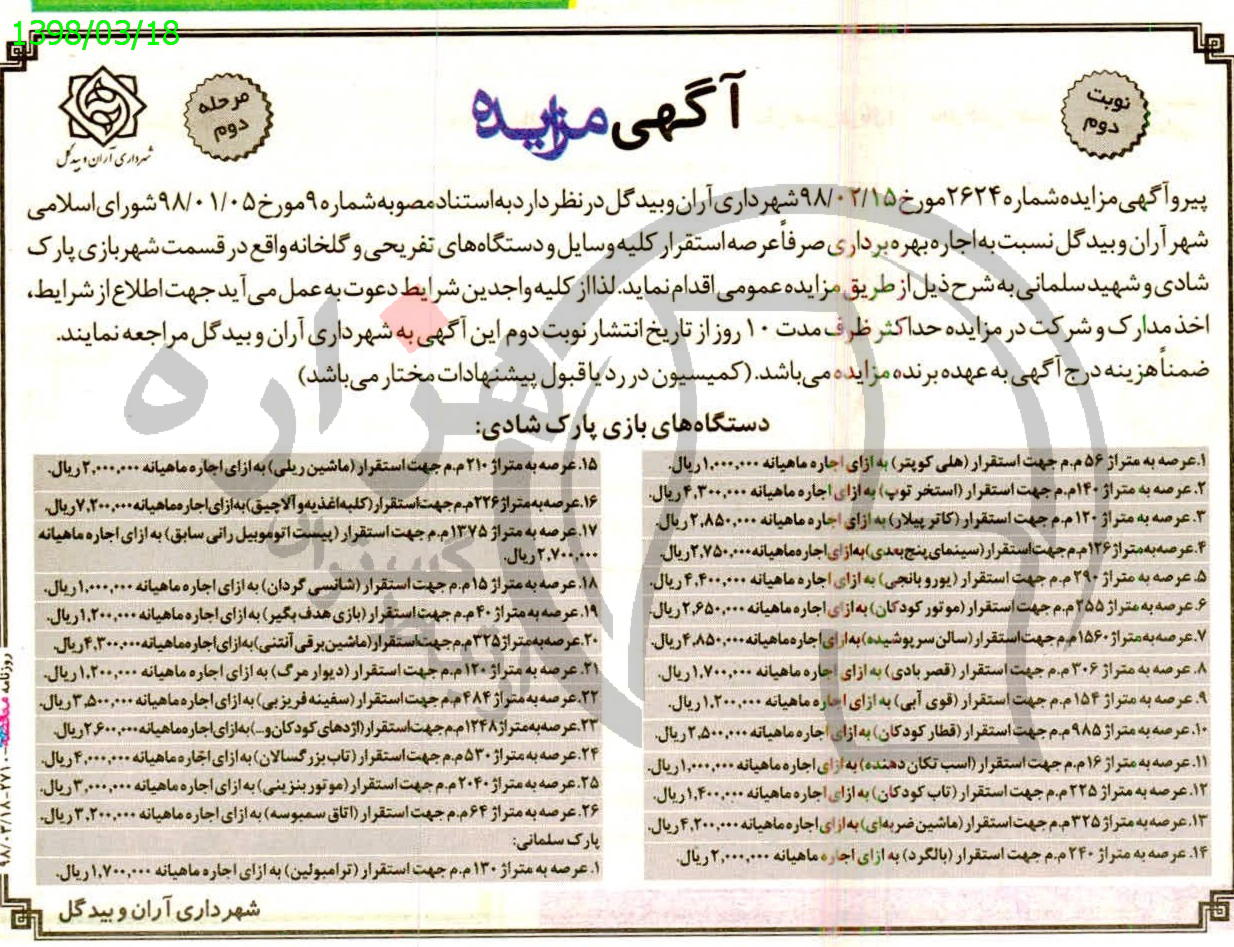 1398/03/18
نوبت
دوم
آگهی مزایده
مرحله
دوم
شهرداری آران و بیدگل
پیرو آگهی مزایده شماره ۲۶۲۴ مورخ ۹۸/۰۲/۱۵ شهرداری آران و بیدگل در نظر دارد به استناد مصوبه شماره ۹ مورخ ۹۸/۰۱/۰۵ شورای اسلامی
شهر آران و بیدگل نسبت به اجاره بهره برداری صرفاً عرصه استقرار کلیه وسایل و دستگاه‌های تفریحی و گلخانه واقع در قسمت شهربازی پارک
شادی و شهید سلمانی به شرح ذیل از طریق مزایده عمومی اقدام نماید. لذا از کلیه واجدین شرایط دعوت به عمل می‌آید جهت اطلاع از شرایط،
اخذ مدارک و شرکت در مزایده حداکثر ظرف مدت ۱۰ روز از تاریخ انتشار نوبت دوم این آگهی به شهرداری آران و بیدگل مراجعه نمایند.
ضمناً هزینه درج آگهی به عهده برنده مزایده می‌باشد. (کمیسیون در رد یا قبول پیشنهادات مختار می‌باشد)
دستگاه‌های بازی پارک شادی:
۱. عرصه به متراژ ۵۶ م.م جهت استقرار (هلی کوپتر) به ازای اجاره ماهیانه ۱,۰۰۰,۰۰۰ ریال.
۲. عرصه به متراژ ۱۴۰ م.م جهت استقرار (استخر توپ) به ازای اجاره ماهیانه ۴,۳۰۰,۰۰۰ ریال.
۳. عرصه به متراژ ۱۲۰ م.م جهت استقرار (کاترپیلار) به ازای اجاره ماهیانه ۲,۸۵۰,۰۰۰ ریال.
۴. عرصه به متراژ ۱۲۶ م.م جهت استقرار (سینمای پنج بعدی) به ازای اجاره ماهیانه ۲,۷۵۰,۰۰۰ ریال.
۵. عرصه به متراژ ۲۹۰ م.م جهت استقرار (یورو بانجی) به ازای اجاره ماهیانه ۴,۴۰۰,۰۰۰ ریال.
۶. عرصه به متراژ ۲۵۵ م.م جهت استقرار (موتور کودکان) به ازای اجاره ماهیانه ۲,۶۵۰,۰۰۰ ریال.
۷. عرصه به متراژ ۱۵۶۰ م.م جهت استقرار (سالن سرپوشیده) به ازای اجاره ماهیانه ۴,۸۵۰,۰۰۰ ریال.
۸. عرصه به متراژ ۳۰۶ م.م جهت استقرار (قصر بادی) به ازای اجاره ماهیانه ۱,۷۰۰,۰۰۰ ریال.
۹. عرصه به متراژ ۱۵۴ م.م جهت استقرار (قوی آبی) به ازای اجاره ماهیانه ۱,۲۰۰,۰۰۰ ریال.
۱۰. عرصه به متراژ ۹۸۵ م.م جهت استقرار (قطار کودکان) به ازای اجاره ماهیانه ۲,۵۰۰,۰۰۰ ریال.
۱۱. عرصه به متراژ ۱۶ م.م جهت استقرار (اسب تکان دهنده) به ازای اجاره ماهیانه ۱,۰۰۰,۰۰۰ ریال.
۱۲. عرصه به متراژ ۲۲۵ م.م جهت استقرار (تاب کودکان) به ازای اجاره ماهیانه ۱,۴۰۰,۰۰۰ ریال.
۱۳. عرصه به متراژ ۳۲۵ م.م جهت استقرار (ماشین ضربه‌ای) به ازای اجاره ماهیانه ۴,۲۰۰,۰۰۰ ریال.
۱۴. عرصه به متراژ ۲۴۰ م.م جهت استقرار (بالگرد) به ازای اجاره ماهیانه ۲,۰۰۰,۰۰۰ ریال.
۱۵. عرصه به متراژ ۲۱۰ م.م جهت استقرار (ماشین ریلی) به ازای اجاره ماهیانه ۲,۰۰۰,۰۰۰ ریال.
۱۶. عرصه به متراژ ۲۲۶ م.م جهت استقرار (کلبه اغذیه و آلاچیق) به ازای اجاره ماهیانه ۷,۲۰۰,۰۰۰ ریال.
۱۷. عرصه به متراژ ۱۳۷۵ م.م جهت استقرار (پیست اتوموبیل رانی سابق) به ازای اجاره ماهیانه
۲,۷۰۰,۰۰۰ ریال.
۱۸. عرصه به متراژ ۱۵ م.م جهت استقرار (شانسی گردان) به ازای اجاره ماهیانه ۱,۰۰۰,۰۰۰ ریال.
۱۹. عرصه به متراژ ۴۰ م.م جهت استقرار (بازی هدف بگیر) به ازای اجاره ماهیانه ۱,۲۰۰,۰۰۰ ریال.
۲۰. عرصه به متراژ ۳۲۵ م.م جهت استقرار (ماشین برقی آنتنی) به ازای اجاره ماهیانه ۴,۳۰۰,۰۰۰ ریال.
۲۱. عرصه به متراژ ۱۲۰ م.م جهت استقرار (دیوار مرگ) به ازای اجاره ماهیانه ۱,۲۰۰,۰۰۰ ریال.
۲۲. عرصه به متراژ ۴۸۴ م.م جهت استقرار (سفینه فریزبی) به ازای اجاره ماهیانه ۳,۵۰۰,۰۰۰ ریال.
۲۳. عرصه به متراژ ۱۲۴۸ م.م جهت استقرار (اژدهای کودکان و...) به ازای اجاره ماهیانه ۲,۶۰۰,۰۰۰ ریال.
۲۴. عرصه به متراژ ۵۳۰ م.م جهت استقرار (تاب بزرگسالان) به ازای اجاره ماهیانه ۴,۰۰۰,۰۰۰ ریال.
۲۵. عرصه به متراژ ۲۰۴۰ م.م جهت استقرار (موتور بنزینی) به ازای اجاره ماهیانه ۳,۰۰۰,۰۰۰ ریال.
۲۶. عرصه به متراژ ۶۴ م.م جهت استقرار (اتاق سمبوسه) به ازای اجاره ماهیانه ۳,۲۰۰,۰۰۰ ریال.
پارک سلمانی:
۱. عرصه به متراژ ۱۳۰ م.م جهت استقرار (ترامبولین) به ازای اجاره ماهیانه ۱,۷۰۰,۰۰۰ ریال.
شهرداری آران و بیدگل
هزاره
روزنامه
۹۸/۰۳/۱۸-۲۷۱۰